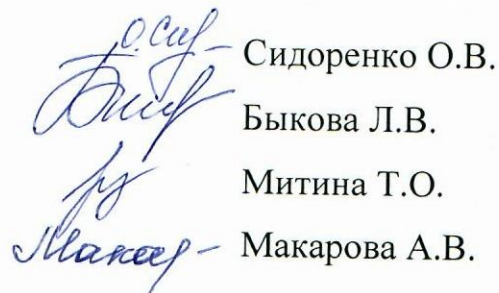 Сидоренко О.В.
Быкова Л.В.
Митина Т.О.
Макарова А.В.